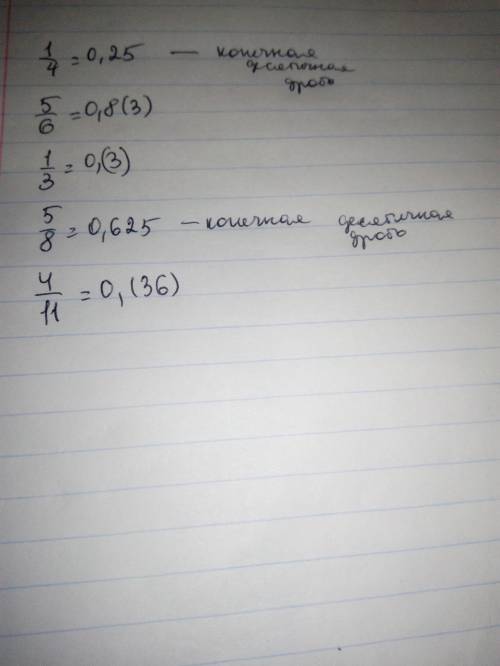 1/4 = 0,25 — конечная
десятичная
дробь
5/6 = 0,8(3)
1/3 = 0,(3)
5/8 = 0,625 — конечная десятичная
дробь
4/11 = 0,(36)